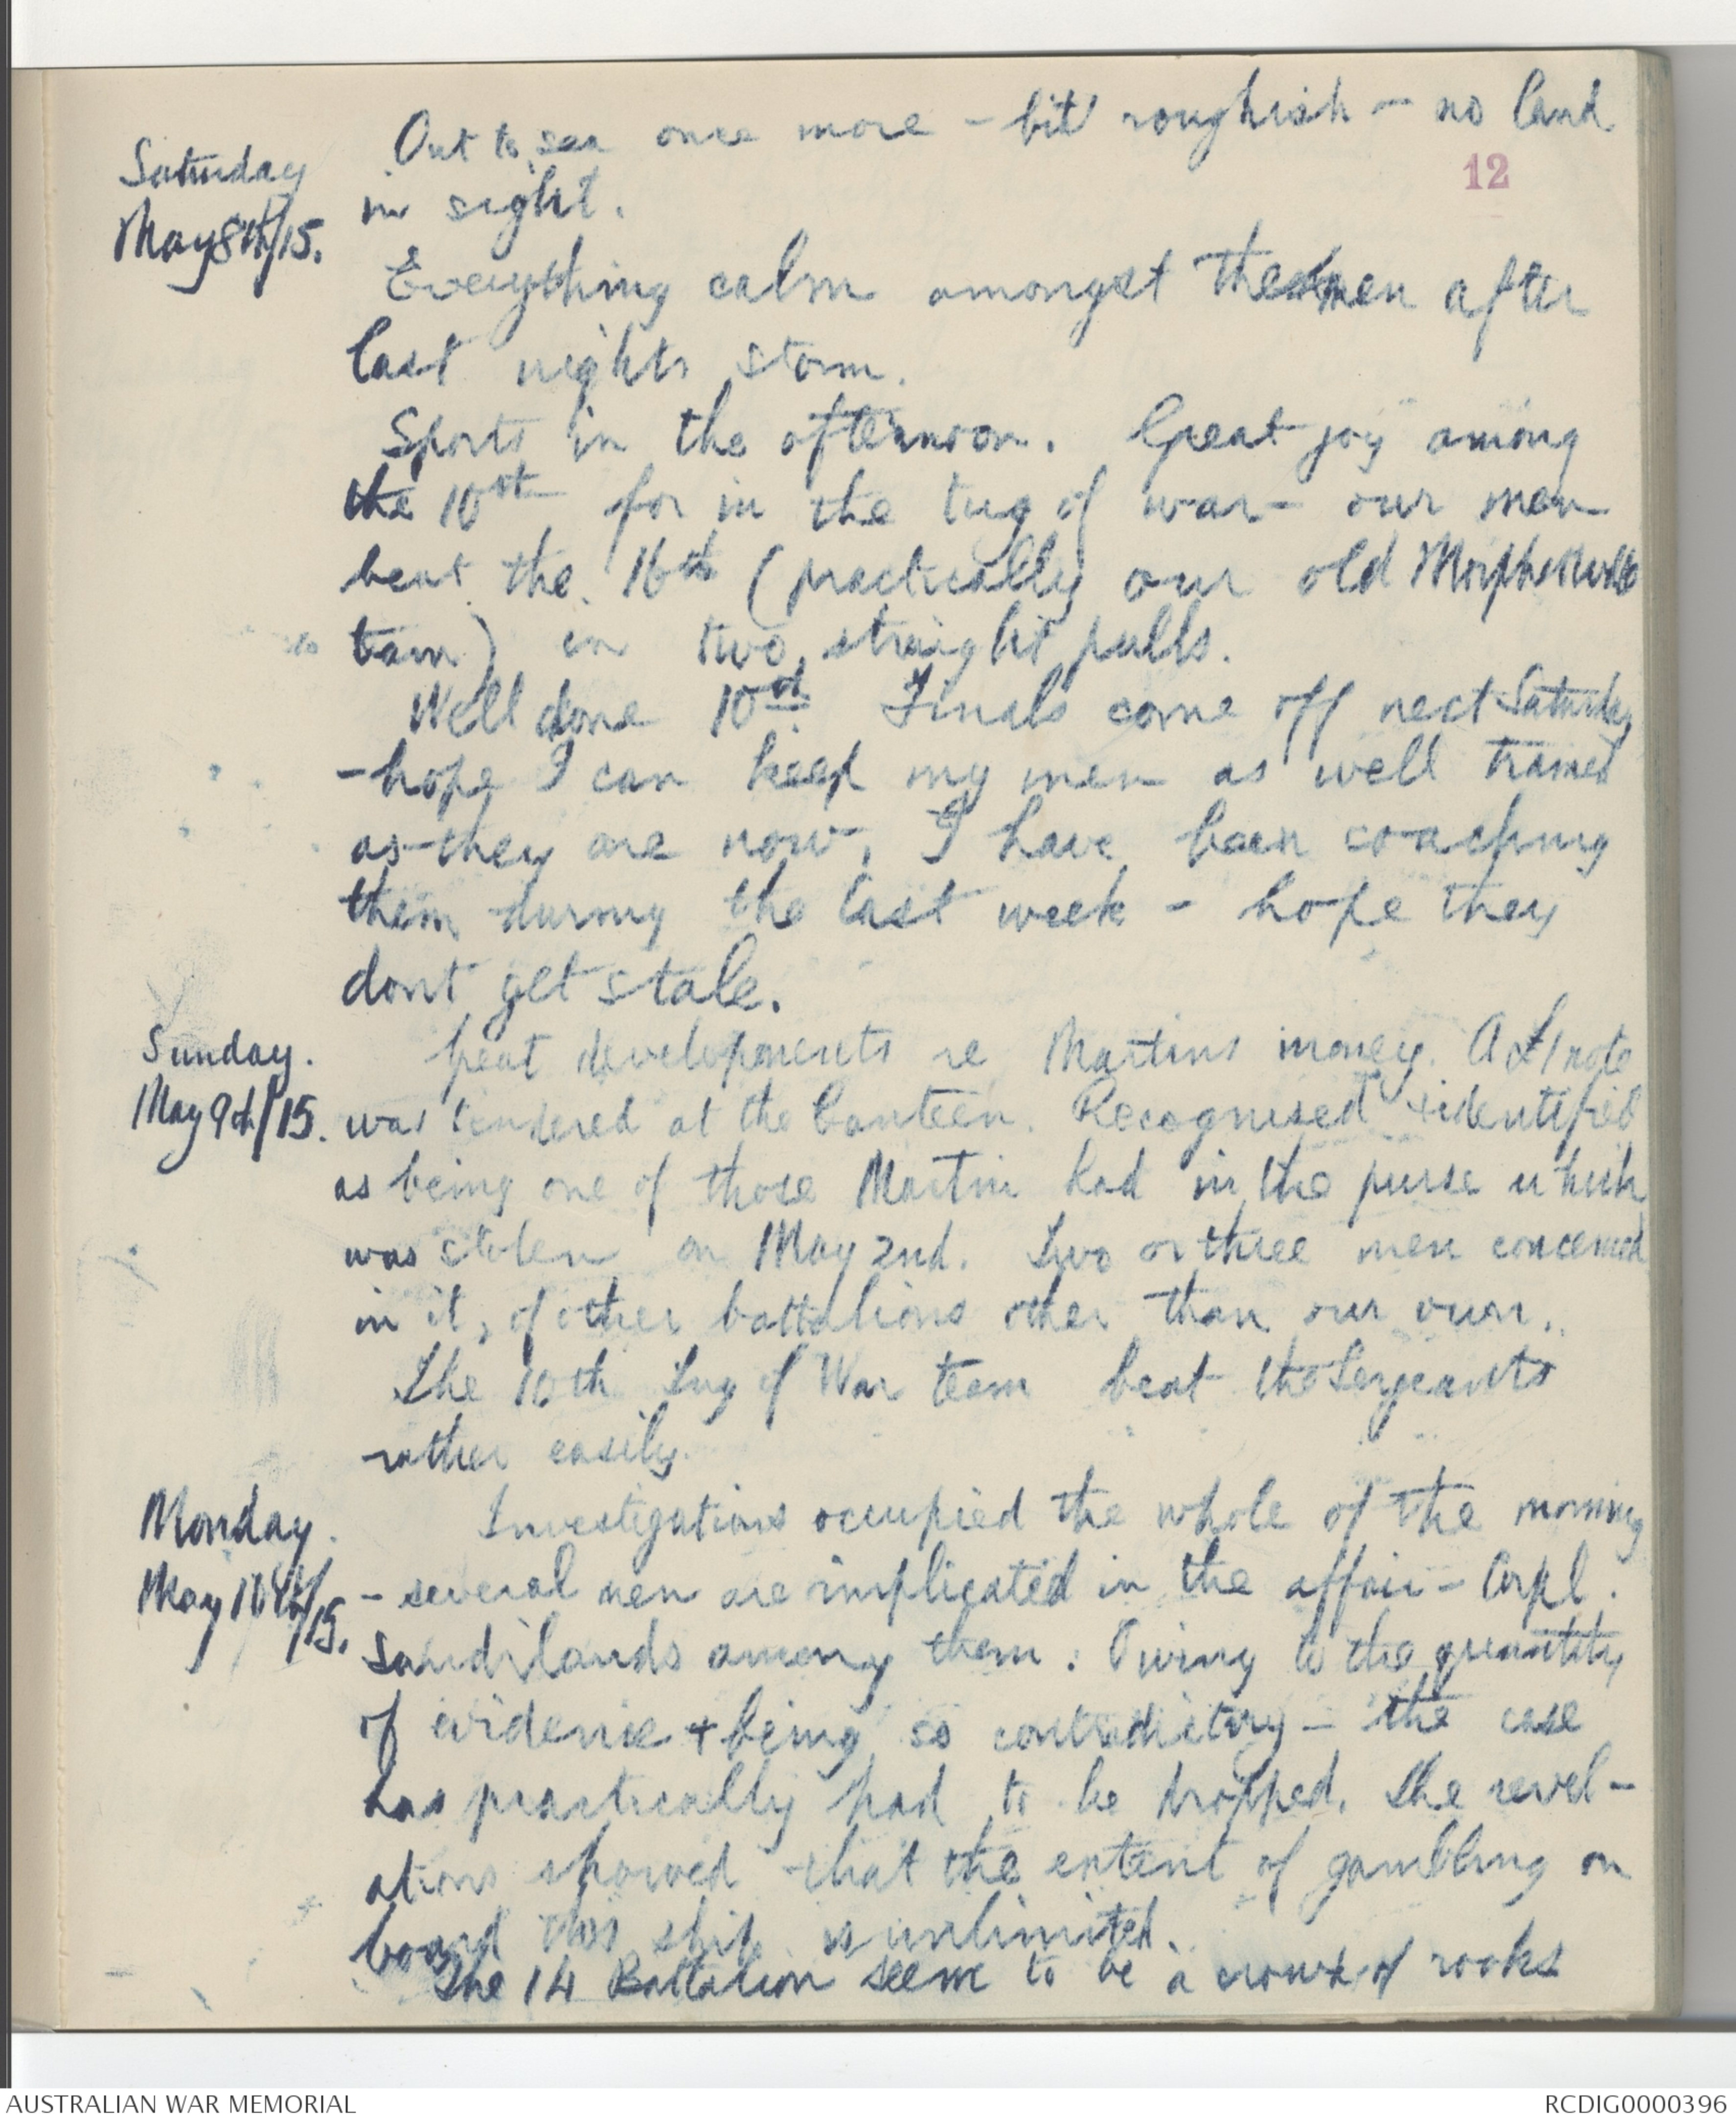 12
Saturday
May 8th/15.
Out to sea once more - bit roughish - no land
in sight.
Everything calm amongst the men after
last nights storm.
Sports in the afternoon. Great joy among
the 10th for in the tug of war - our men
beat the 16th (practically our old Morphettville
team) in two straight pulls.
Well done 10th Finals come off next Saturday
- hope I can keep my men as well trained
as they are now, I have been coaching
them during the last week - hope they
dont get stale.
Sunday.
May 9th/15.
Great developments re Martins money. A £1 note
was tendered at the Canteen. Recognised + identified
as being one of those Martin had in the purse which
was stolen on May 2nd. Two or three men concerned
in it, of other battalions other than our own.
The 10th Tug of War team beat the Sergeants
rather easily.
Monday.
May 10th/15.
Investigations occupied the whole of the morning
- several men are implicated in the affair - Corpl.
Sandilands among them. Owing to the quantity
of evidence + being so contradictory - the case
has practically had to be dropped. The revel-
ations showed that the extent of gambling on
board this ship is unlimited.
The 14 Battalion seem to be a crowd of rooks
AUSTRALIAN WAR MEMORIAL
RCDIG0000396